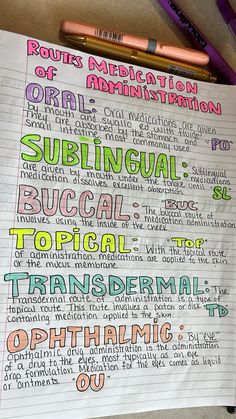 ROUTES MEDICATION
OF ADMINISTRATION
ORAL: Oral medications are given
by mouth and swallowed with fluids.
They are absorbed by the stomach and "PO"
small intestine, most commonly used.
SUBLINGUAL: Sublingual medications
are given by mouth under the tongue until
medication dissolves, excellent absorption. SL
BUCCAL: BUC The buccal route of
medication administration
involves using the inside of the cheek.
TOPICAL: TOP With the topical route
of administration medications are applied to the skin
or the mucus membrane.
TRANSDERMAL: The
Transdermal route of administration is a type of
topical route. This route involves a patch or disk TD
containing medication applied to the skin.
OPHTHALMIC: By "eye"
ophthalmic drug administration is the administration
of a drug to the eyes, most typically as an eye
drop formulation. Medication for the eyes comes as liquid
or ointments. "OU"